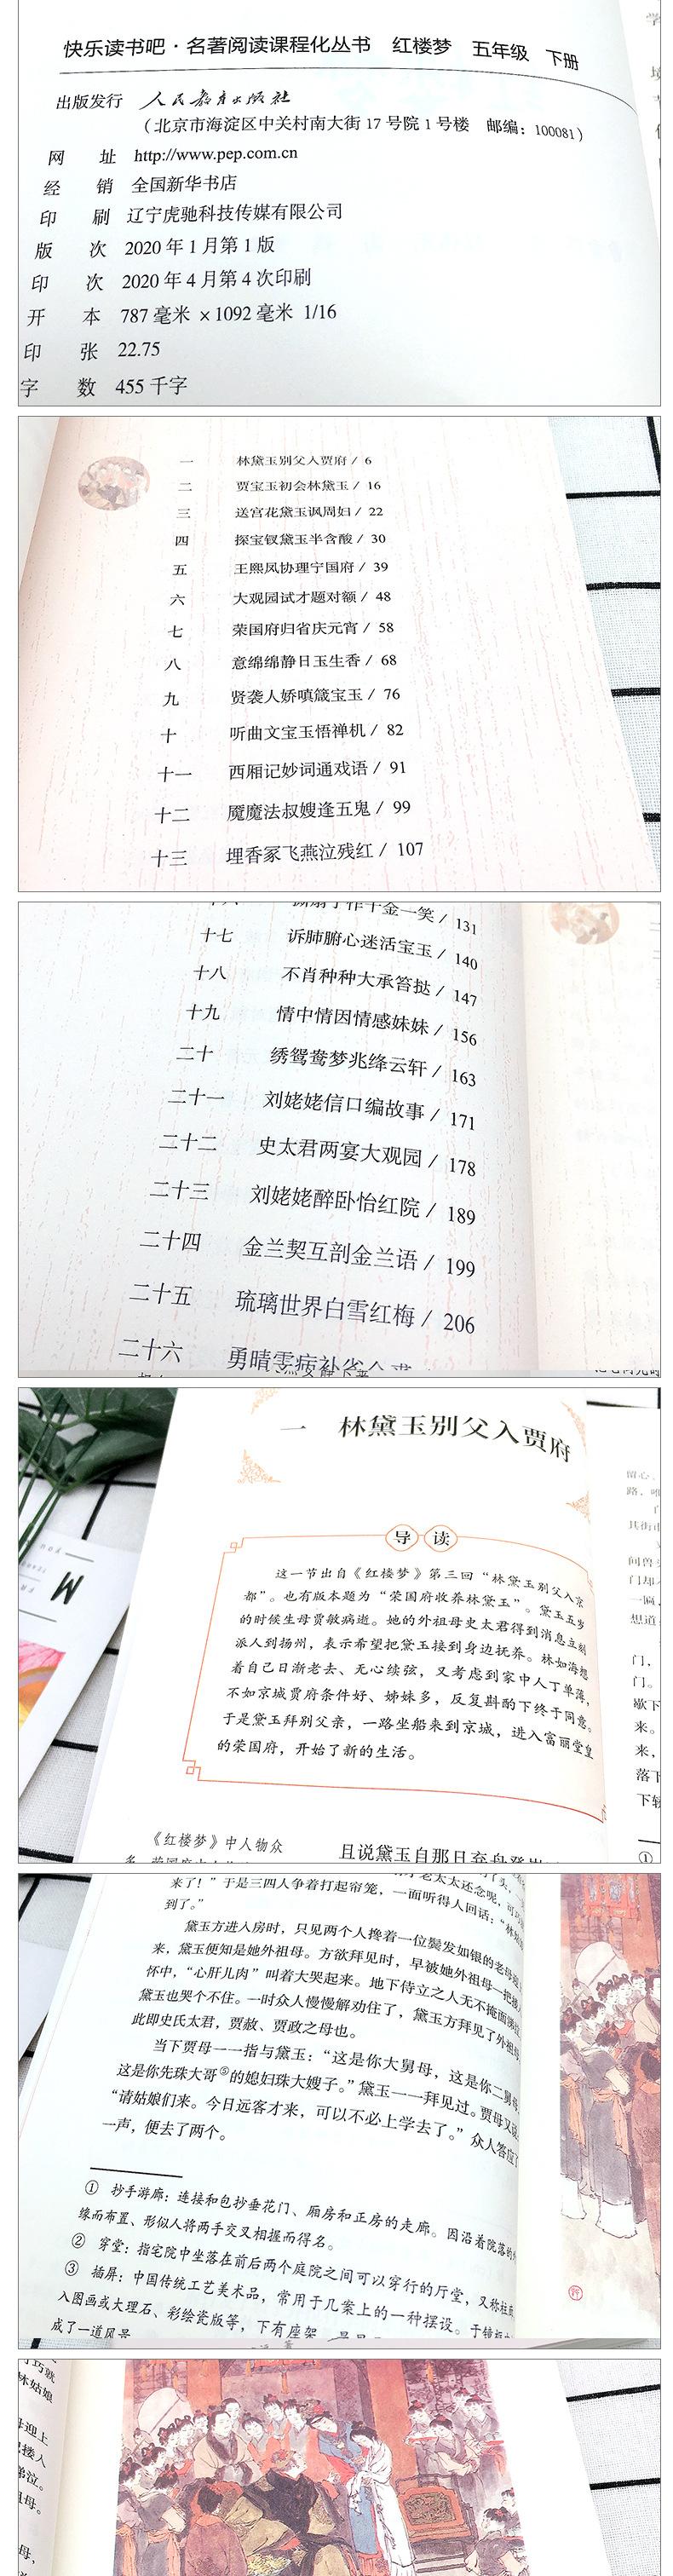 快乐读书吧·名著阅读课程化丛书 红楼梦 五年级 下册
出版发行 人民教育出版社
（北京市海淀区中关村南大街17号院1号楼 邮编：100081）
网 址 http://www.pep.com.cn
经 销 全国新华书店
印 刷 辽宁虎驰科技传媒有限公司
版 次 2020年1月第1版
印 次 2020年4月第4次印刷
开 本 787毫米×1092毫米 1/16
印 张 22.75
字 数 455千字
一 林黛玉别父入贾府 / 6
二 贾宝玉初会林黛玉 / 16
三 送宫花黛玉讽周妇 / 22
四 探宝钗黛玉半含酸 / 30
五 王熙凤协理宁国府 / 39
六 大观园试才题对额 / 48
七 荣国府归省庆元宵 / 58
八 意绵绵静日玉生香 / 68
九 贤袭人娇嗔箴宝玉 / 76
十 听曲文宝玉悟禅机 / 82
十一 西厢记妙词通戏语 / 91
十二 魇魔法叔嫂逢五鬼 / 99
十三 埋香冢飞燕泣残红 / 107
作千金一笑 / 131
十七 诉肺腑心迷活宝玉 / 140
十八 不肖种种大承笞挞 / 147
十九 情中情因情感妹妹 / 156
二十 绣鸳鸯梦兆绛云轩 / 163
二十一 刘姥姥信口编故事 / 171
二十二 史太君两宴大观园 / 178
二十三 刘姥姥醉卧怡红院 / 189
二十四 金兰契互剖金兰语 / 199
二十五 琉璃世界白雪红梅 / 206
二十六 勇晴雯病补雀金裘
一 林黛玉别父入贾府
导读
这一节出自《红楼梦》第三回“林黛玉别父入京
都”。也有版本题为“荣国府收养林黛玉”。黛玉五岁
的时候生母贾敏病逝。她的外祖母史太君得到消息立刻
派人到扬州，表示希望把黛玉接到身边抚养。林如海想
着自己日渐老去、无心续弦，又考虑到家中人丁单薄，
不如京城贾府条件好、姊妹多，反复斟酌下终于同意。
于是黛玉拜别父亲，一路坐船来到京城，进入富丽堂皇
的荣国府，开始了新的生活。
《红楼梦》中人物众
且说黛玉自那日弃舟登岸
来了！”于是三四人争着打起帘笼，一面听得人回话：“林姑娘
到了。”
黛玉方进入房时，只见两个人搀着一位鬓发如银的老母迎上
来，黛玉便知是她外祖母。方欲拜见时，早被她外祖母一把搂入
怀中，“心肝儿肉”叫着大哭起来。地下侍立之人无不掩面涕泣，
黛玉也哭个不住。一时众人慢慢解劝住了，黛玉方拜见了外祖母。
此即史氏太君，贾赦、贾政之母也。
当下贾母一一指与黛玉：“这是你大舅母，这是你二舅母，
这是你先珠大哥⑤的媳妇珠大嫂子。”黛玉一一拜见过。贾母又说：
“请姑娘们来。今日远客才来，可以不必上学去了。”众人答应了
一声，便去了两个。
① 抄手游廊：连接和包抄垂花门、厢房和正房的走廊。因沿着院落的外
缘而布置、形似人将两手交叉相握而得名。
② 穿堂：指宅院中坐落在前后两个庭院之间可以穿行的厅堂，又称
③ 插屏：中国传统工艺美术品，常用于几案上的一种摆设。于镜框
入图画或大理石、彩绘瓷版等，下有座架
成了一道风景